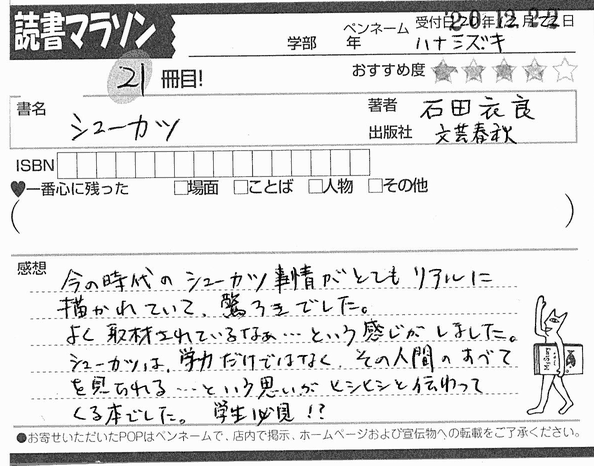 読書マラソン
ペンネーム 受付日'20年12月22日
学部 年 ハナミズキ
21 冊目!
おすすめ度
書名 シューカツ
著者 石田衣良
出版社 文芸春秋
ISBN
一番心に残った □場面 □ことば □人物 □その他
( )
感想
今の時代のシューカツ事情がとてもリアルに
描かれていて、驚ろきでした。
よく取材されているなぁ…という感じがしました。
シューカツは、学力だけではなく、その人間のすべて
を見られる…という思いがヒシヒシと伝わって
くる本でした。 学生必見!?
●お寄せいただいたPOPはペンネームで、店内で掲示、ホームページおよび宣伝物への転載をご了承ください。